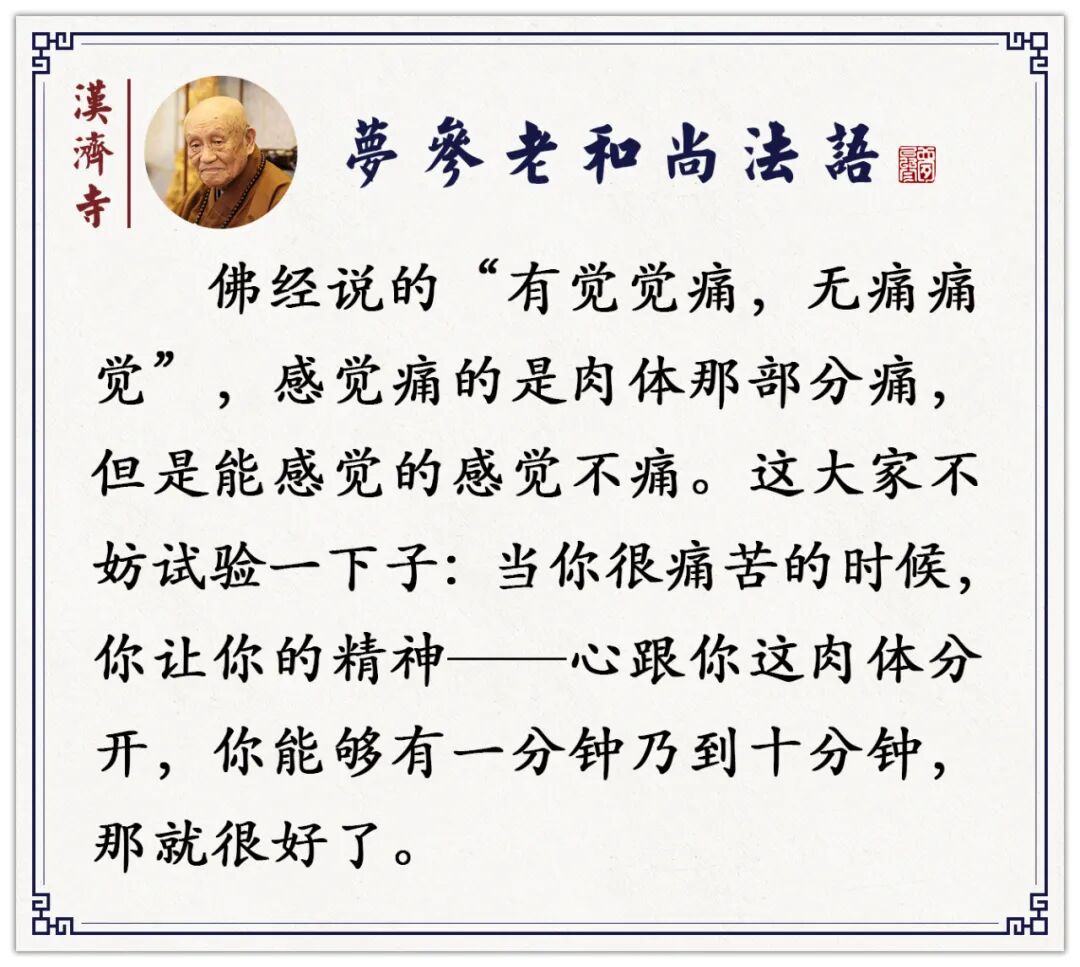 漢濟寺
夢參老和尚法語
佛经说的“有觉觉痛，无痛痛
觉”，感觉痛的是肉体那部分痛，
但是能感觉的感觉不痛。这大家不
妨试验一下子：当你很痛苦的时候，
你让你的精神——心跟你这肉体分
开，你能够有一分钟乃到十分钟，
那就很好了。